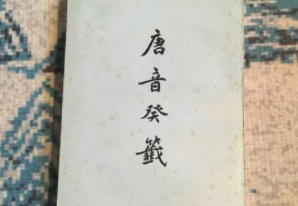 唐音癸籤